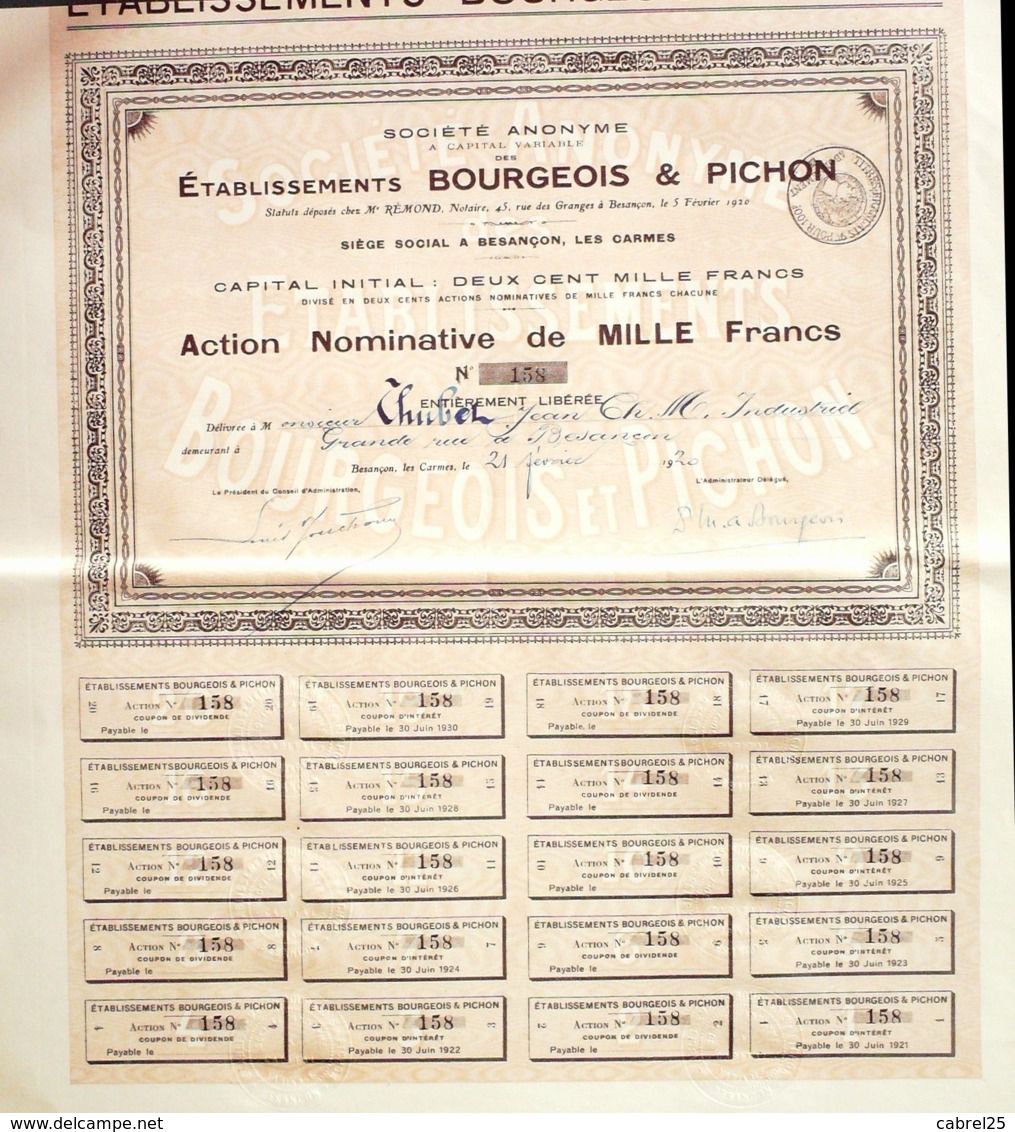 ÉTABLISSEMENTS BOURGEOIS
SOCIÉTÉ ANONYME
A CAPITAL VARIABLE
DES
ÉTABLISSEMENTS BOURGEOIS & PICHON
Statuts déposés chez Mᵉ RÉMOND, Notaire, 45, rue des Granges à Besançon, le 5 Février 1920
SIÈGE SOCIAL A BESANÇON, LES CARMES
CAPITAL INITIAL : DEUX CENT MILLE FRANCS
DIVISÉ EN DEUX CENTS ACTIONS NOMINATIVES DE MILLE FRANCS CHACUNE
Action Nominative de MILLE Francs
N° 158
ENTIÈREMENT LIBÉRÉE
Délivrée à Monsieur Jean Ch. M. Industriel
demeurant à Grande rue à Besançon
Besançon, les Carmes, le 21 février 1920
Le Président du Conseil d'Administration,
L'Administrateur Délégué,
Bourgeois
SOCIÉTÉ ANONYME
DES
ÉTABLISSEMENTS
BOURGEOIS ET PICHON
ÉTABLISSEMENTS BOURGEOIS & PICHON
20 ACTION N° 158 20
COUPON DE DIVIDENDE
Payable le
ÉTABLISSEMENTS BOURGEOIS & PICHON
19 ACTION N° 158 19
COUPON D'INTÉRÊT
Payable le 30 Juin 1930
ÉTABLISSEMENTS BOURGEOIS & PICHON
18 ACTION N° 158 18
COUPON DE DIVIDENDE
Payable le
ÉTABLISSEMENTS BOURGEOIS & PICHON
17 ACTION N° 158 17
COUPON D'INTÉRÊT
Payable le 30 Juin 1929
ÉTABLISSEMENTS BOURGEOIS & PICHON
16 ACTION N° 158 16
COUPON DE DIVIDENDE
Payable le
ÉTABLISSEMENTS BOURGEOIS & PICHON
15 ACTION N° 158 15
COUPON D'INTÉRÊT
Payable le 30 Juin 1928
ÉTABLISSEMENTS BOURGEOIS & PICHON
14 ACTION N° 158 14
COUPON DE DIVIDENDE
Payable le
ÉTABLISSEMENTS BOURGEOIS & PICHON
13 ACTION N° 158 13
COUPON D'INTÉRÊT
Payable le 30 Juin 1927
ÉTABLISSEMENTS BOURGEOIS & PICHON
12 ACTION N° 158 12
COUPON DE DIVIDENDE
Payable le
ÉTABLISSEMENTS BOURGEOIS & PICHON
11 ACTION N° 158 11
COUPON D'INTÉRÊT
Payable le 30 Juin 1926
ÉTABLISSEMENTS BOURGEOIS & PICHON
10 ACTION N° 158 10
COUPON DE DIVIDENDE
Payable le
ÉTABLISSEMENTS BOURGEOIS & PICHON
9 ACTION N° 158 9
COUPON D'INTÉRÊT
Payable le 30 Juin 1925
ÉTABLISSEMENTS BOURGEOIS & PICHON
8 ACTION N° 158 8
COUPON DE DIVIDENDE
Payable le
ÉTABLISSEMENTS BOURGEOIS & PICHON
7 ACTION N° 158 7
COUPON D'INTÉRÊT
Payable le 30 Juin 1924
ÉTABLISSEMENTS BOURGEOIS & PICHON
6 ACTION N° 158 6
COUPON DE DIVIDENDE
Payable le
ÉTABLISSEMENTS BOURGEOIS & PICHON
5 ACTION N° 158 5
COUPON D'INTÉRÊT
Payable le 30 Juin 1923
ÉTABLISSEMENTS BOURGEOIS & PICHON
4 ACTION N° 158 4
COUPON DE DIVIDENDE
Payable le
ÉTABLISSEMENTS BOURGEOIS & PICHON
3 ACTION N° 158 3
COUPON D'INTÉRÊT
Payable le 30 Juin 1922
ÉTABLISSEMENTS BOURGEOIS & PICHON
2 ACTION N° 158 2
COUPON DE DIVIDENDE
Payable le
ÉTABLISSEMENTS BOURGEOIS & PICHON
1 ACTION N° 158 1
COUPON D'INTÉRÊT
Payable le 30 Juin 1921
cabrel25